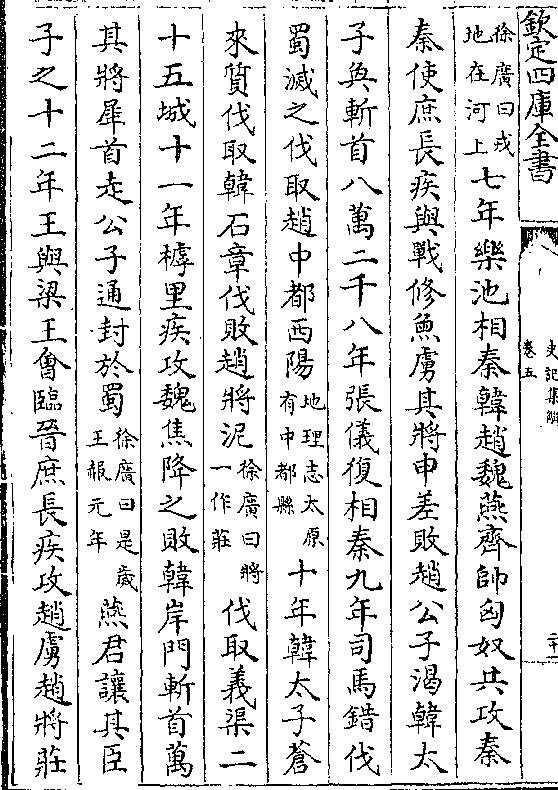 欽定四庫全書
史記集解
卷五
二十一
徐廣曰戎
地在河上
七年樂池相秦韓趙魏燕齊帥匈奴共攻秦
秦使庶長疾與戰修魚虜其將申差敗趙公子渴韓太
子奐斬首八萬二千八年張儀復相秦九年司馬錯伐
蜀滅之伐取趙中都西陽
地理志太原
有中都縣
十年韓太子蒼
來質伐取韓石章伐敗趙將泥
徐廣曰將
一作莊
伐取義渠二
十五城十一年樗里疾攻魏焦降之敗韓岸門斬首萬
其將犀首走公子通封於蜀
徐廣曰是歲
王赧元年
燕君讓其臣
子之十二年王與梁王會臨晉庶長疾攻趙虜趙將莊